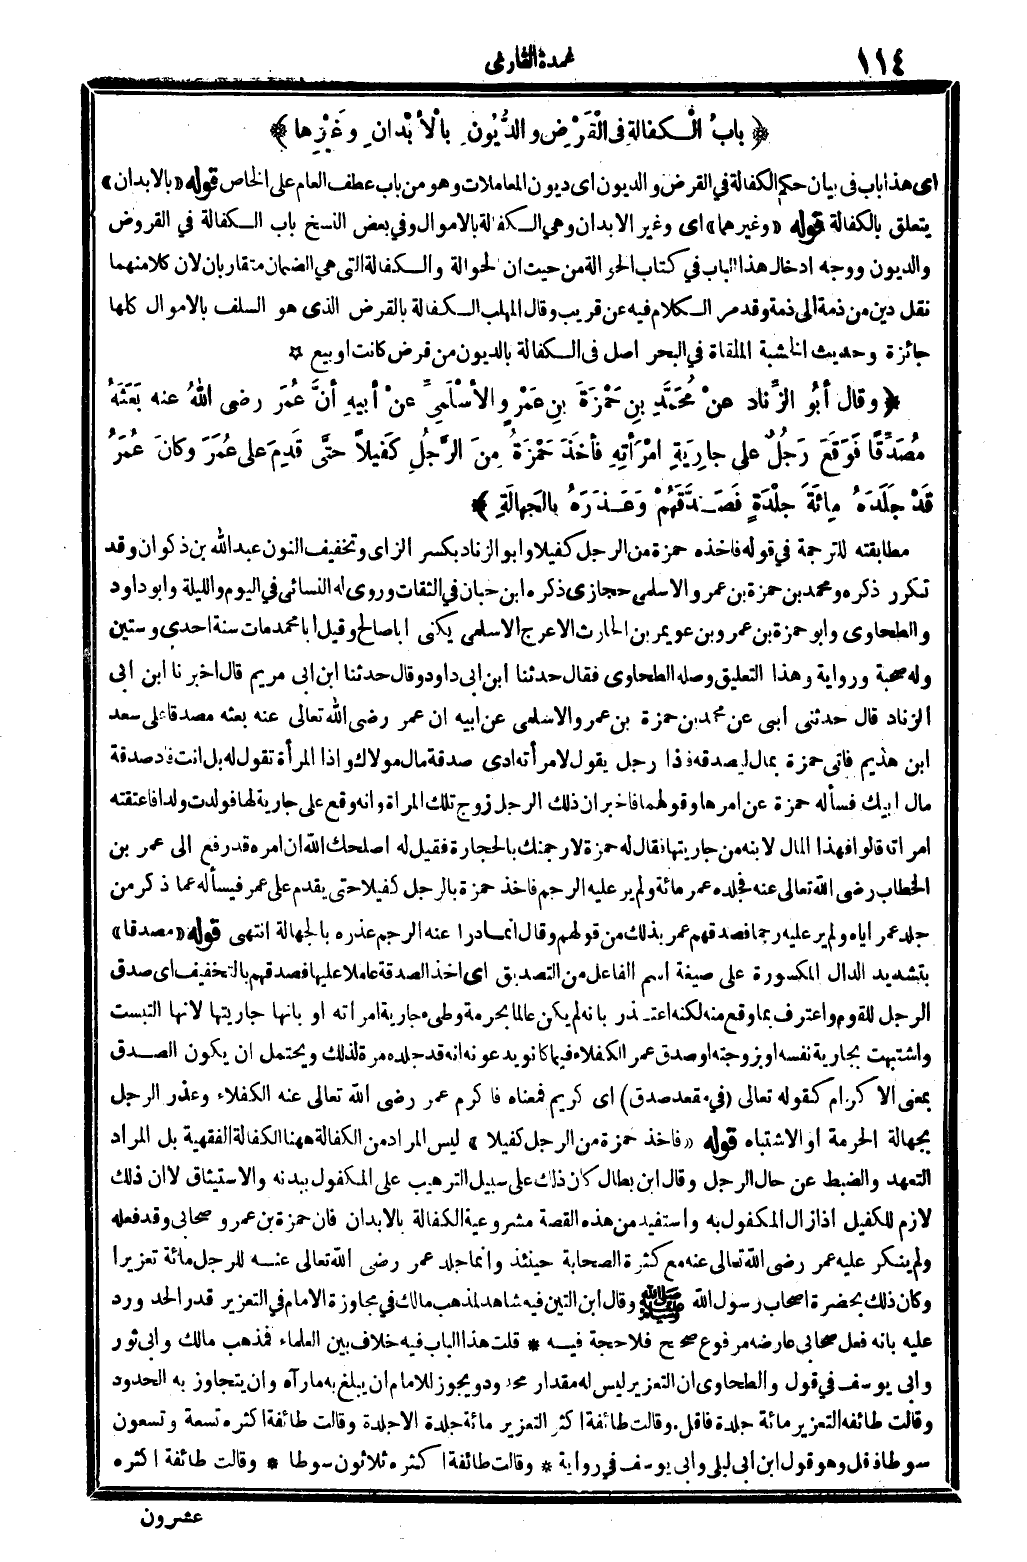 ١١٤
عمدة القارئ
﴿ بابُ الْكفالةِ فى الْقَرْضِ والدُّيُونِ بالأبْدانِ وغَيْرِها ﴾
اى هذا باب فى بيان حكم الكفالة في القرض والديون اى ديون المعاملات وهو من باب عطف العام على الخاص قوله «بالابدان»
يتعلق بالكفالة قوله «وغيرها» اى وغير الابدان وهي الكفالة بالاموال وفي بعض النسخ باب الكفالة في القروض
والديون ووجه ادخال هذا الباب في كتاب الحوالة من حيث ان الحوالة والكفالة التى هي الضمان متقاربان لان كلا منهما
نقل دين من ذمة الى ذمة وقد مر الكلام فيه عن قريب وقال المهلب الكفالة بالقرض الذى هو السلف بالاموال كلها
جائزة وحديث الخشبة الملقاة في البحر اصل فى الكفالة بالديون من قرض كانت او بيع ۞
﴿ وقال أبُو الزِّناد عنْ مُحَمَّدِ بنِ حَمْزَةَ بنِ عَمْرٍو الأسْلَمِيِّ عنْ أبيهِ أنَّ عُمَرَ رضى اللهُ عنه بَعَثَهُ
مُصَدِّقًا فَوَقَعَ رَجُلٌ على جارِيَةِ امْرَأتِهِ فأخَذَ حَمْزَةُ مِنَ الرَّجُلِ كَفيلاً حتَّى قَدِمَ على عُمَرَ وكانَ عُمَرُ
قَدْ جَلَدَهُ مِائَةَ جلْدَةٍ فَصَدَّقَهُمْ وَعَذَرَهُ بالجَهالَةِ ﴾
مطابقته للترجمة في قوله فاخذ حمزة من الرجل كفيلا وابو الزناد بكسر الزاى وتخفيف النون عبد الله بن ذكوان وقد
تكرر ذكره ومحمد بن حمزة بن عمرو الاسلمى حجازى ذكره ابن حبان في الثقات وروى له النسائى في اليوم والليلة وابو داود
والطحاوى وابو حمزة بن عمرو بن عويمر بن الحارث الاعرج الاسلمى يكنى ابا صالح وقيل ابا محمد مات سنة احدى وستين
وله صحبة ورواية وهذا التعليق وصله الطحاوى فقال حدثنا ابن ابى داود وقال حدثنا ابن ابى مريم قال اخبرنا ابن ابى
الزناد قال حدثنى ابى عن محمد بن حمزة بن عمرو الاسلمى عن ابيه ان عمر رضى الله تعالى عنه بعثه مصدقا على سعد
ابن هذيم فاتى حمزة بمال ليصدقه فاذا رجل يقول لامرأته ادى صدقة مال مولاك واذا المرأة تقول له بل انت فاد صدقة
مال ابيك فسأله حمزة عن امرها وقولهما فاخبر ان ذلك الرجل زوج تلك المراة وانه وقع على جارية لها فولدت ولدا فاعتقته
امراته قالوا فهذا المال لابنه من جاريتها فقال له حمزة لارجمنك بالحجارة فقيل له اصلحك الله ان امره قد رفع الى عمر بن
الخطاب رضى الله تعالى عنه فجلده عمر مائة ولم ير عليه الرجم فاخذ حمزة بالرجل كفيلا حتى يقدم على عمر فيسأله عما ذكر من
جلد عمر اياه ولم ير عليه رجما فصدقهم عمر بذلك من قولهم وقال انما درا عنه الرجم عذره بالجهالة انتهى قوله «مصدقا»
بتشديد الدال المكسورة على صيغة اسم الفاعل من التصديق اى اخذ الصدقة عاملا عليها فصدقهم بالتخفيف اى صدق
الرجل للقوم واعترف بما وقع منه لكنه اعتذر بانه لم يكن عالما بحرمة وطىء جارية امراته او بانها جاريتها لانها التبست
واشتبهت بجارية نفسه او بزوجته او صدق عمر الكفلاء فيما كانو يدعونه انه قد جلده مرة لذلك ويحتمل ان يكون الصدق
بمعنى الاكرام كقوله تعالى (في مقعد صدق) اى كريم فمعناه فاكرم عمر رضى الله تعالى عنه الكفلاء وعذر الرجل
بجهالة الحرمة او الاشتباه قوله «فاخذ حمزة من الرجل كفيلا» ليس المراد من الكفالة ههنا الكفالة الفقهية بل المراد
التعهد والضبط عن حال الرجل وقال ابن بطال كان ذلك على سبيل الترهيب على المكفول ببدنه والاستيثاق لا ان ذلك
لازم للكفيل اذا زال المكفول به واستفيد من هذه القصة مشروعية الكفالة بالابدان فان حمزة بن عمرو صحابى وقد فعله
ولم ينكر عليه عمر رضى الله تعالى عنه مع كثرة الصحابة حينئذ وانما جلد عمر رضى الله تعالى عنه للرجل مائة تعزيرا
وكان ذلك بحضرة اصحاب رسول الله ﷺ وقال ابن التين فيه شاهد لمذهب مالك في مجاوزة الامام في التعزير قدر الحد ورد
عليه بانه فعل صحابى عارضه مرفوع صحيح فلا حجة فيه * قلت هذا الباب فيه خلاف بين العلماء فمذهب مالك وابى ثور
وابى يوسف في قول والطحاوى ان التعزير ليس له مقدار محدود ويجوز للامام ان يبلغ به ما رآه وان يتجاوز به الحدود
وقالت طائفه التعزير مائة جلدة فاقل. وقالت طائفة اكثر التعزير مائة جلدة الا جلدة وقالت طائفة اكثره تسعة وتسعون
سوطا فاقل وهو قول ابن ابى ليلى وابى يوسف في رواية * وقالت طائفة اكثره ثلاثون سوطا * وقالت طائفة اكثره
عشرون